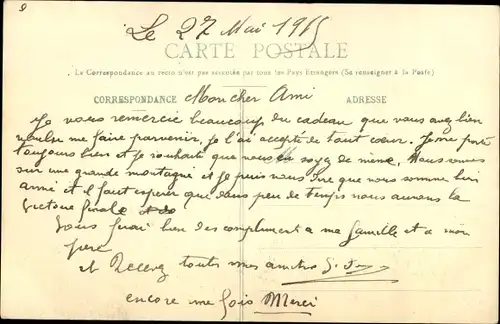 9
Le 27 Mai 1915
CARTE POSTALE
La Correspondance au recto n'est pas acceptée par tous les Pays Etrangers (Se renseigner à la Poste)
CORRESPONDANCE Mon cher Ami ADRESSE
Je vous remercie beaucoup du cadeau que vous avez bien
voulue me faire parvenir, je l'ai accepté de tout cœur. Je me porte
toujours bien et je souhaite que vous soyez de meme. Nous
sur une grande montagne et je puis vous dire que nous somme bien
armé et il faut esperer que dans peu de temps nous aurons la
Victoire finale
Vous ferai bien des compliment a ma famille et a mon
pere
et Recevez toutes mes
encore une fois Merci